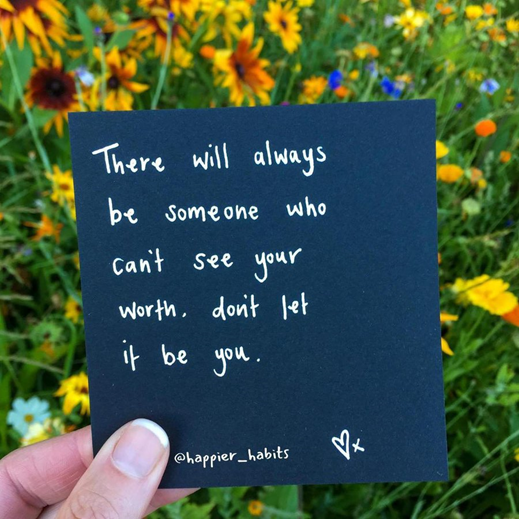 There will always
be someone who
can't see your
worth. don't let
it be you.
@happier_habits ♡x